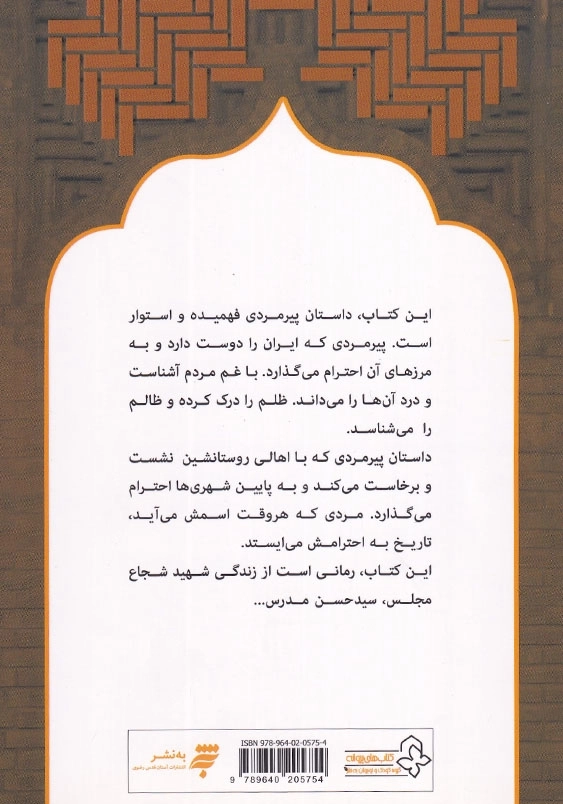 این کتاب، داستان پیرمردی فهمیده و استوار
است. پیرمردی که ایران را دوست دارد و به
مرزهای آن احترام می‌گذارد. با غم مردم آشناست
و درد آن‌ها را می‌داند. ظلم را درک کرده و ظالم
را می‌شناسد.
داستان پیرمردی که با اهالی روستانشین نشست
و برخاست می‌کند و به پایین شهری‌ها احترام
می‌گذارد. مردی که هروقت اسمش می‌آید،
تاریخ به احترامش می‌ایستد.
این کتاب، رمانی است از زندگی شهید شجاع
مجلس، سیدحسن مدرس...
ISBN 978-964-02-0575-4
9 789640 205754
به‌نشر
انتشارات آستان قدس رضوی
کتاب‌های پروانه